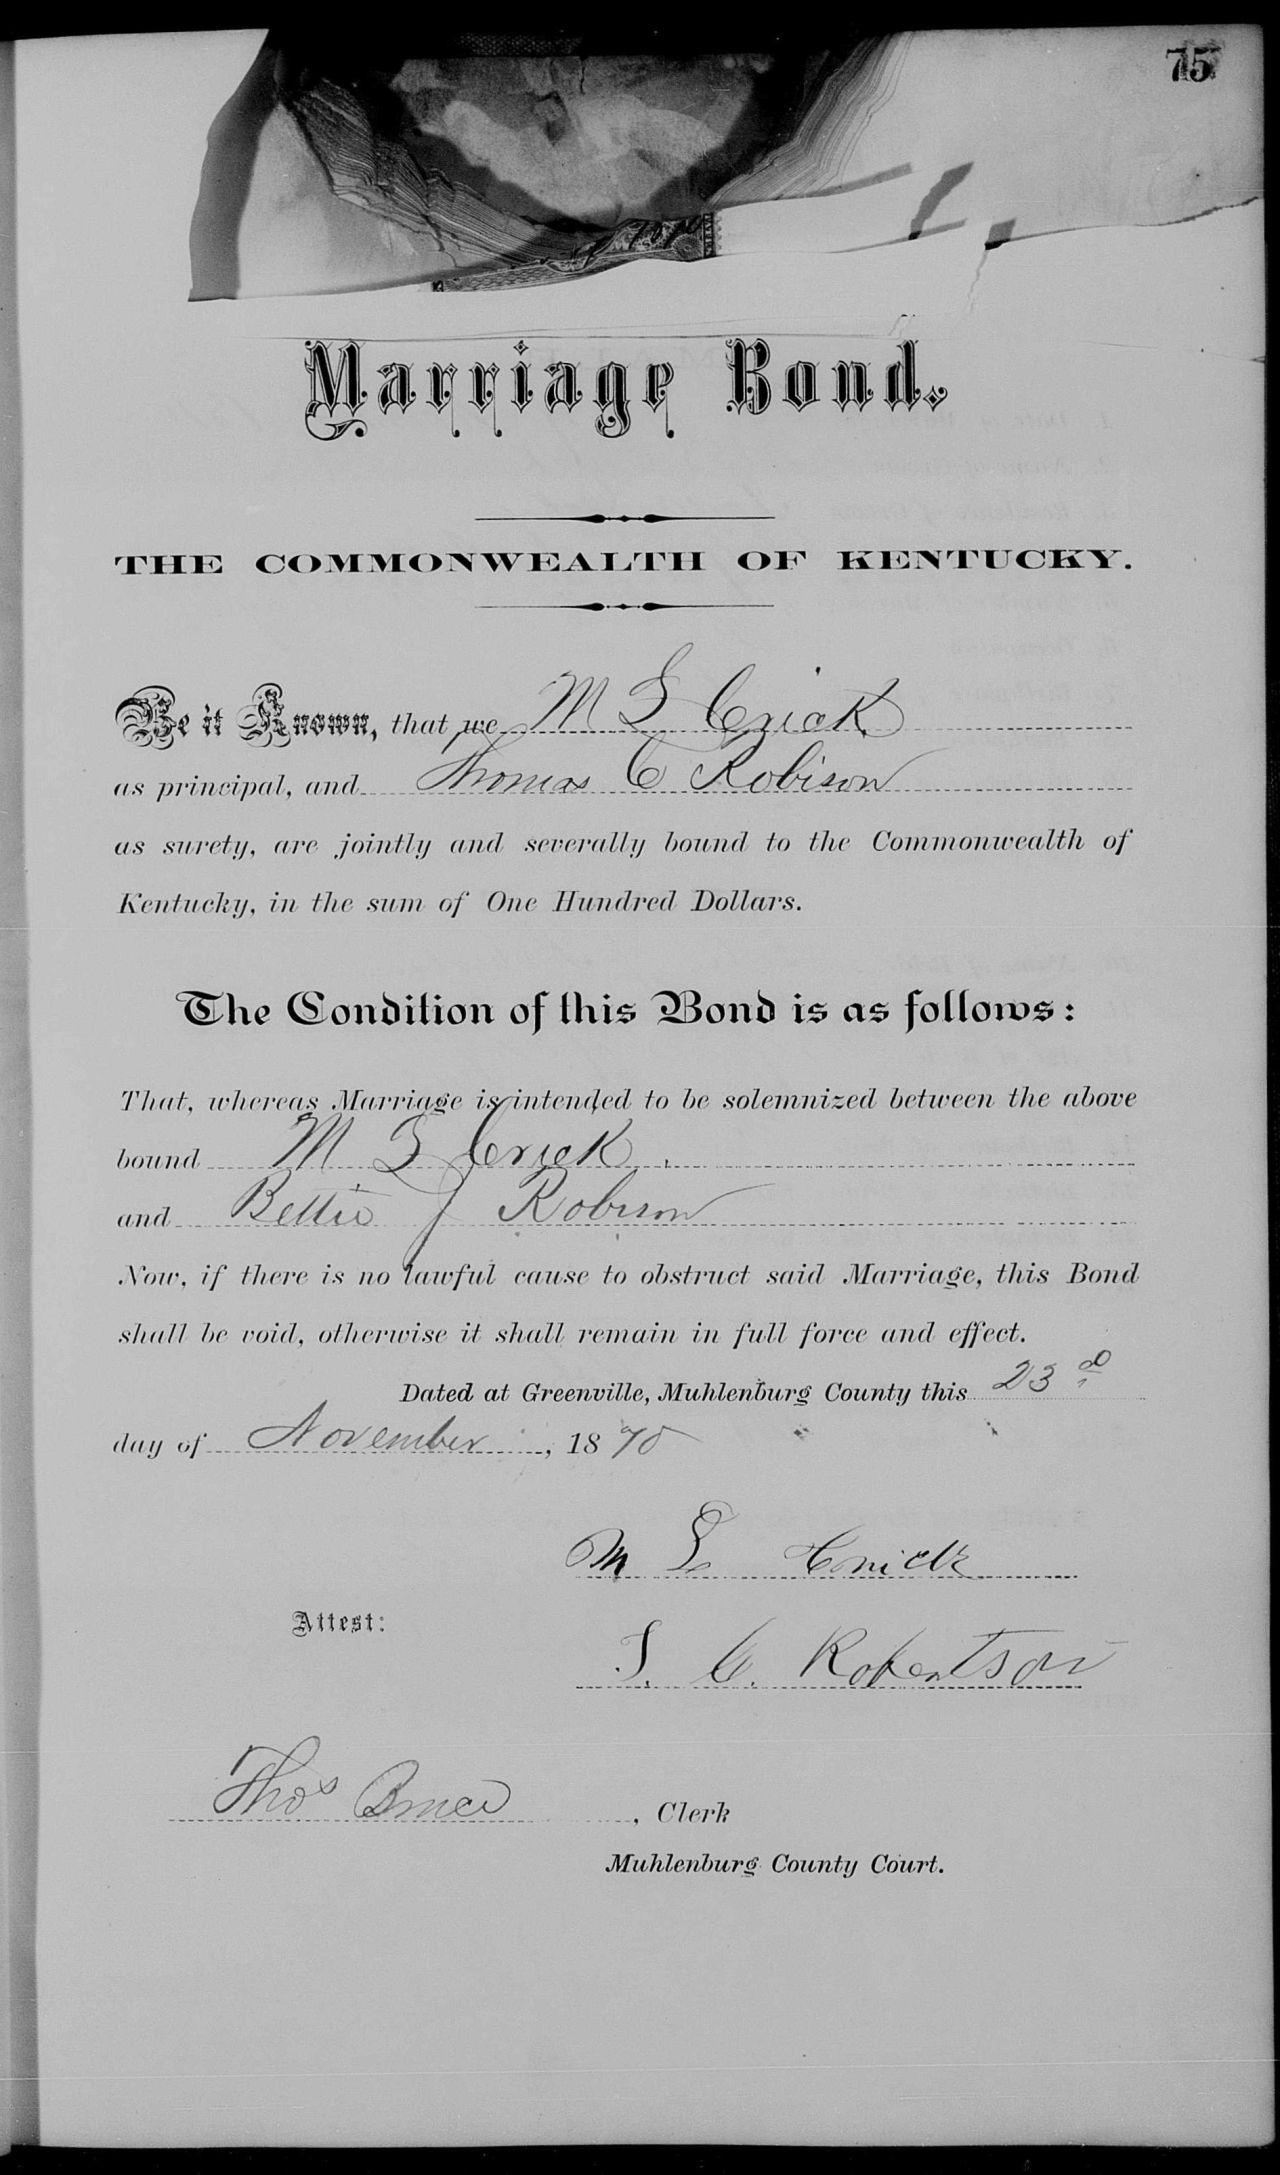 75
Marriage Bond.
THE COMMONWEALTH OF KENTUCKY.
Be it Known, that we M L Crick
as principal, and Thomas C Robison
as surety, are jointly and severally bound to the Commonwealth of
Kentucky, in the sum of One Hundred Dollars.
The Condition of this Bond is as follows:
That, whereas Marriage is intended to be solemnized between the above
bound M L Crick
and Bettie J Robison
Now, if there is no lawful cause to obstruct said Marriage, this Bond
shall be void, otherwise it shall remain in full force and effect.
Dated at Greenville, Muhlenburg County this 23d
day of November, 1870
M L Crick
Attest:
T. C. Robertson
Thos Bruce, Clerk
Muhlenburg County Court.